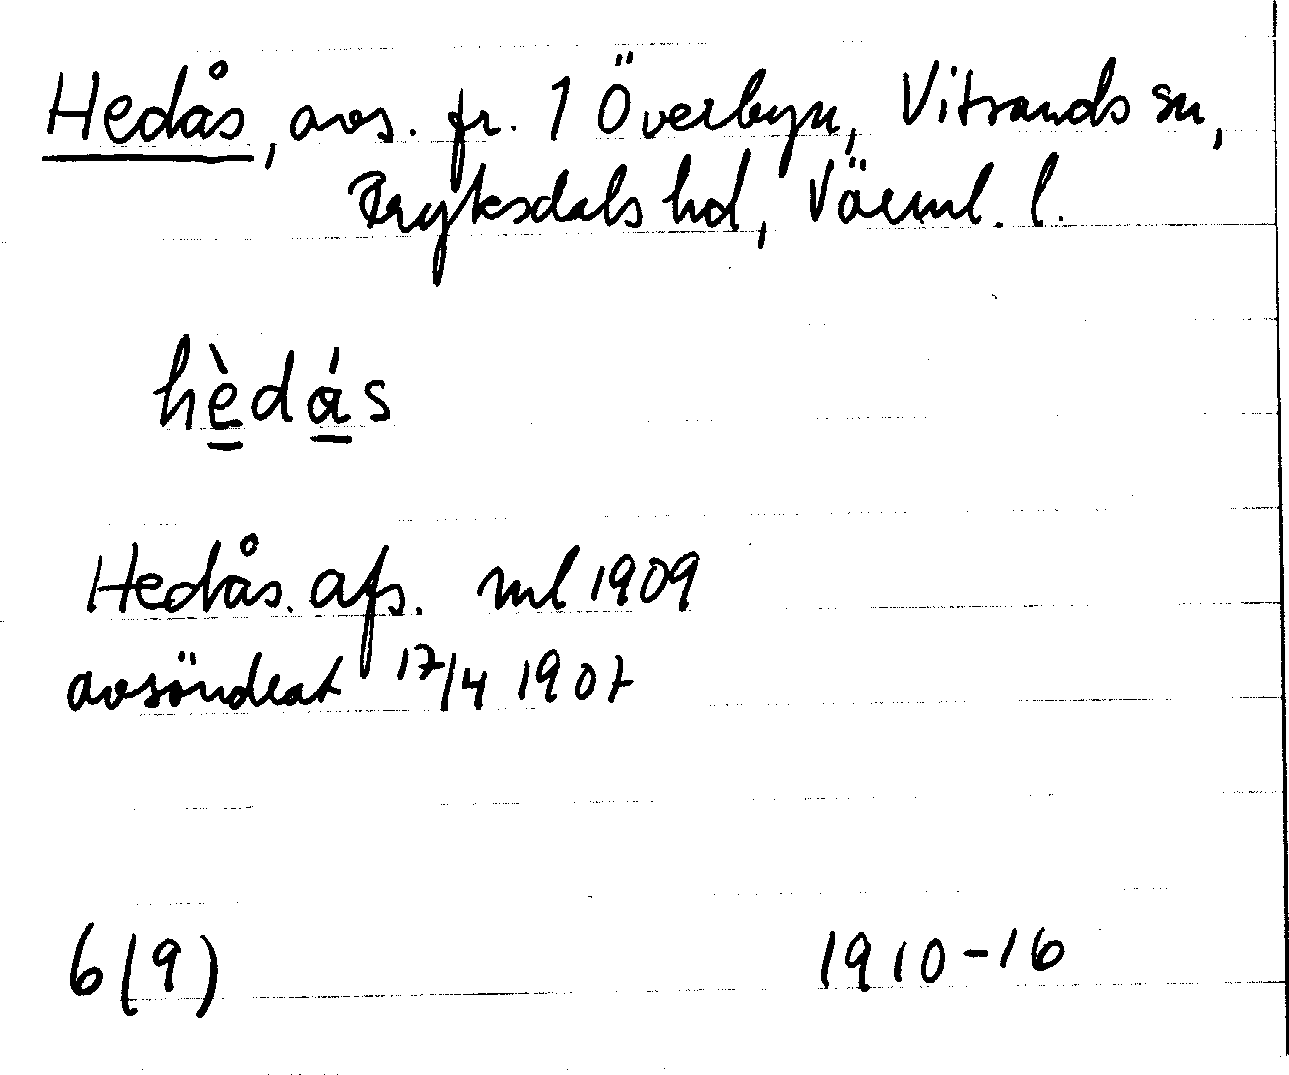 Hedås, avs. fr. 1 Överbyn, Vitsands sn,
Fryksdals hd, Värml. l.
hèdás
Hedås. afs. ml 1909
avsöndrat 17/4 1907
6(9) 1910-16